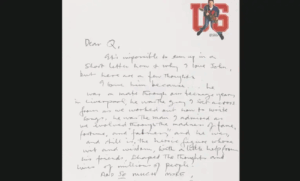 US
Dear Q.
It's impossible to sum up in a
short letter how & why I love John,
but here are a few thoughts
I love him because he
was a mate through our teenage years
in Liverpool, he was the guy I sat across
from as we worked out how to write
songs. he was the man I admired as
we evolved through the madness of fame,
fortune, and he was,
and still is, the heroic figure whose
wit and wisdom, with a little help from
his friends, shaped the thoughts and
lives of millions of people.
And so much more.